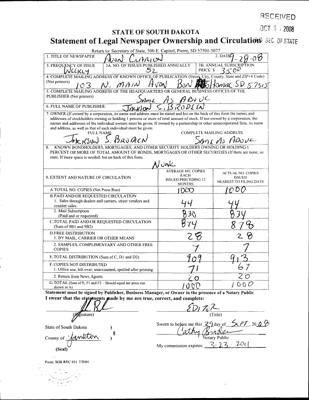 RECEIVED
OCT 1 2008
SEC OF STATE
STATE OF SOUTH DAKOTA
Statement of Legal Newspaper Ownership and Circulation
Return to: Secretary of State, 500 E. Capitol, Pierre, SD 57501-5077
1. TITLE OF NEWSPAPER
Avon Clarion
2. DATE
9-28-08
3. FREQUENCY OF ISSUE
Weekly
3A. NO. OF ISSUES PUBLISHED ANNUALLY
52
3B. ANNUAL SUBSCRIPTION PRICE $
4. COMPLETE MAILING ADDRESS OF KNOWN OFFICE OF PUBLICATION (Street, City, County, State and ZIP+4 Code) (Not printers)
103 N. MAIN Avon Bon Homme SD 57315
5. COMPLETE MAILING ADDRESS OF THE HEADQUARTERS OR GENERAL BUSINESS OFFICES OF THE PUBLISHER (Not printers)
Same As Above
6. FULL NAME OF PUBLISHER:
Jackson S. Brodeen
7. OWNER (If owned by a corporation, its name and address must be stated and also on the back of this form the names and addresses of stockholders owning or holding 1 percent or more of total amount of stock. If not owned by a corporation, the names and addresses of the individual owners must be given. If owned by a partnership or other unincorporated firm, its name and address, as well as that of each individual must be given.
FULL NAME
COMPLETE MAILING ADDRESS
Jackson S. Brodeen
Same As Above
8. KNOWN BONDHOLDERS, MORTGAGES, AND OTHER SECURITY HOLDERS OWNING OR HOLDING 1 PERCENT OR MORE OF TOTAL AMOUNT OF BONDS, MORTGAGES OR OTHER SECURITIES (If there are none, so state. If more space is needed, list on back of this form.
None
9. EXTENT AND NATURE OF CIRCULATION
AVERAGE NO. COPIES EACH ISSUED PRECEDING 12 MONTHS
ACTUAL NO. COPIES ISSUED NEAREST TO FILING DATE
A. TOTAL NO. COPIES (Net Press Run)
1000
1000
B. PAID AND/OR REQUESTED CIRCULATION
1. Sales through dealers and carriers, street vendors and counter sales.
44
44
2. Mail Subscription (Paid and/or requested)
830
834
C. TOTAL PAID AND/OR REQUESTED CIRCULATION (Sum of 9B1 and 9B2)
874
878
D. FREE DISTRIBUTION
1. BY MAIL, CARRIER OR OTHER MEANS
28
28
2. SAMPLES, COMPLIMENTARY AND OTHER FREE COPIES
7
7
E. TOTAL DISTRIBUTION (Sum of C, D1 and D2)
909
913
F. COPIES NOT DISTRIBUTED
1. Office use, left over, unaccounted, spoiled after printing
71
67
2. Return from News Agents
20
20
G. TOTAL (Sum of E, F1 and F2 - Should equal net press run shown in A)
1000
1000
Statement must be signed by Publisher, Business Manager, or Owner in the presence of a Notary Public
I swear that the statements made by me are true, correct, and complete:
(Signature)
Editor
(Title)
State of South Dakota )
) §
County of )
(Seal)
Sworn to before me this 29 day of Sept. 2008
Notary Public
My commission expires: 3-23-2011